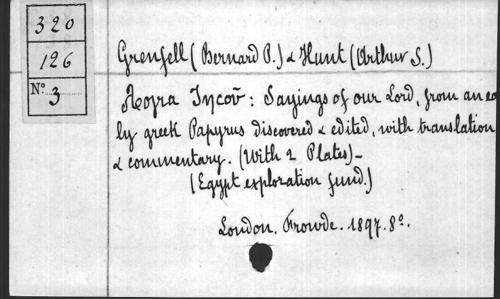 320
126
Nº 3
Grenfell (Bernard P.) & Hunt (Arthur S.)
Λογια Ιησοῦ: Sayings of our Lord, from an ea
ly greek Papyrus discovered & edited, with translation
& commentary. (With 2 Plates)_
(Egypt exploration fund.)
London. Frowde. 1897. 8º.